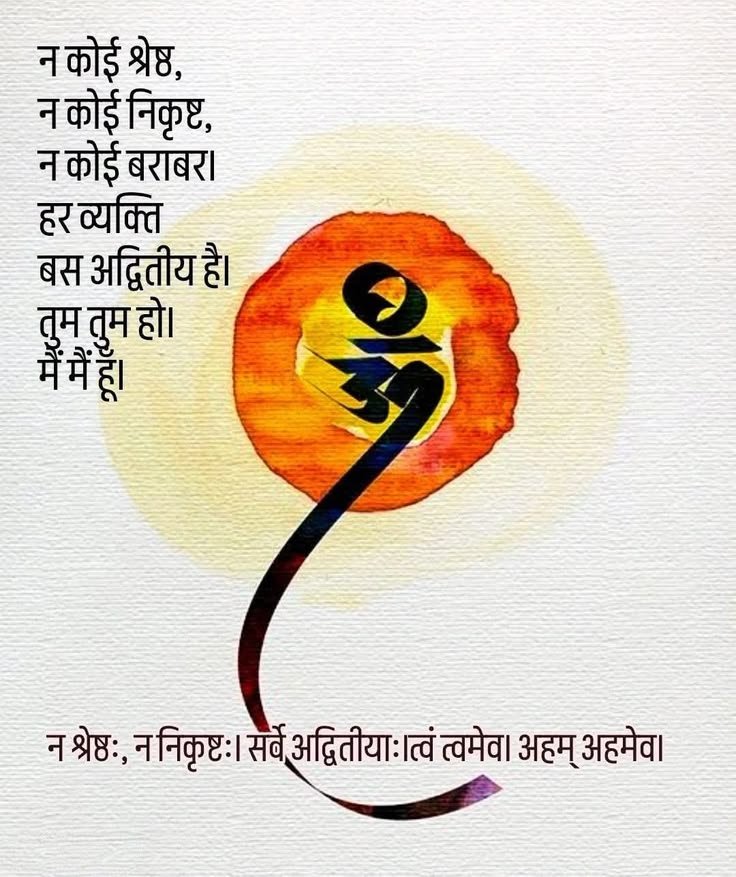 न कोई श्रेष्ठ,
न कोई निकृष्ट,
न कोई बराबर।
हर व्यक्ति
बस अद्वितीय है।
तुम तुम हो।
मैं मैं हूँ।
न श्रेष्ठः, न निकृष्टः। सर्वे अद्वितीयाः।त्वं त्वमेव। अहम् अहमेव।